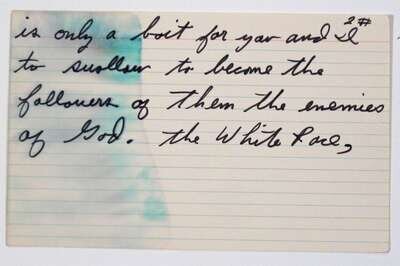 2#
is only a bait for you and I
to swallow to become the
followers of them the enemies
of God. the White Race,